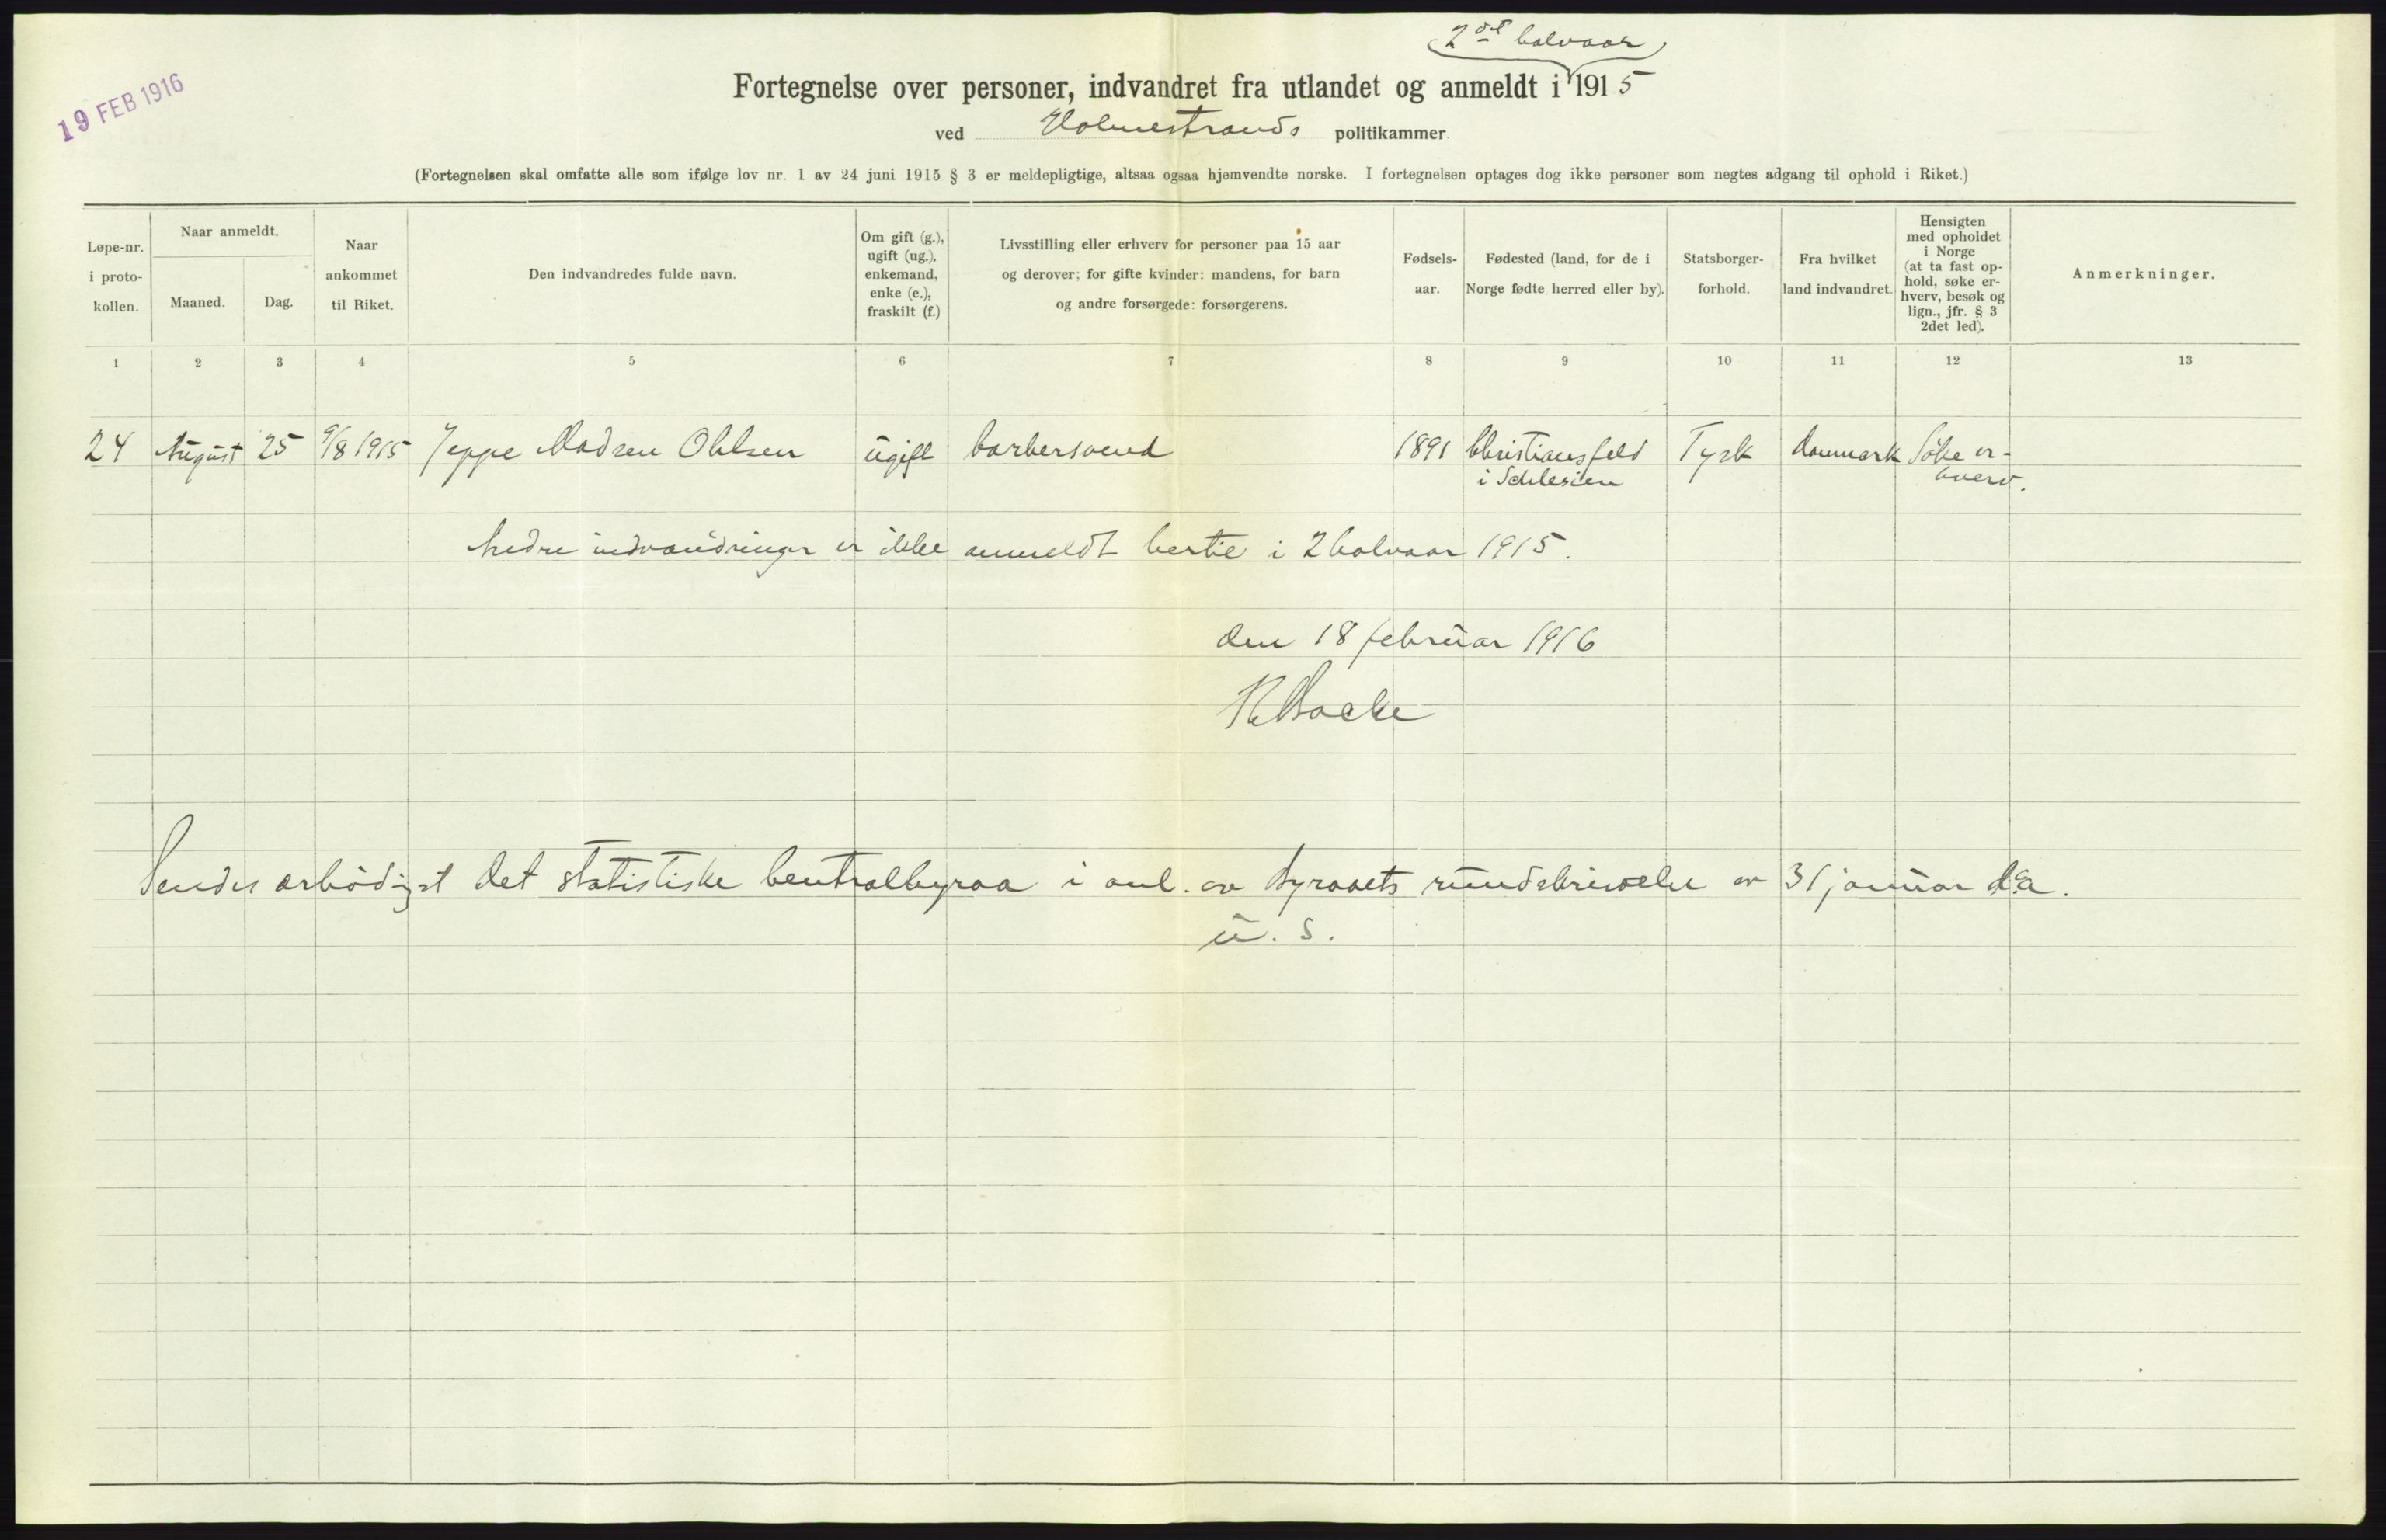 2det halvaar
19 FEB 1916
Fortegnelse over personer, indvandret fra utlandet og anmeldt i 1915
ved Holmestrands politikammer
(Fortegnelsen skal omfatte alle som ifølge lov nr. 1 av 24 juni 1915 § 3 er meldepligtige, altsaa ogsaa hjemvendte norske. I fortegnelsen optages dog ikke personer som negtes adgang til ophold i Riket.)
Løpe-nr.
i proto-
kollen.
Naar anmeldt.
Maaned.
Dag.
Naar
ankommet
til Riket.
Den indvandredes fulde navn.
Om gift (g.),
ugift (ug.),
enkemand,
enke (e.),
fraskilt (f.)
Livsstilling eller erhverv for personer paa 15 aar
og derover; for gifte kvinder: mandens, for barn
og andre forsørgede: forsørgerens.
Fødsels-
aar.
Fødested (land, for de i
Norge fødte herred eller by).
Statsborger-
forhold.
Fra hvilket
land indvandret.
Hensigten
med opholdet
i Norge
(at ta fast op-
hold, søke er-
hverv, besøk og
lign., jfr. § 3
2det led).
Anmerkninger.
1 2 3 4 5 6 7 8 9 10 11 12 13
24 August 25 9/8 1915 Jeppe Madsen Ohlsen ugift barbersvend 1891 Christiansfeld Tysk Danmark Søke er-
i Schlesien hverv.
Andre indvandringer er ikke anmeldt hertil i 2 halvaar 1915.
den 18 februar 1916
Sendes ærbödigst det statistiske Centralbyraa i anl. av Byraaets rundskrivelse av 31 januar d.a.
u. s.